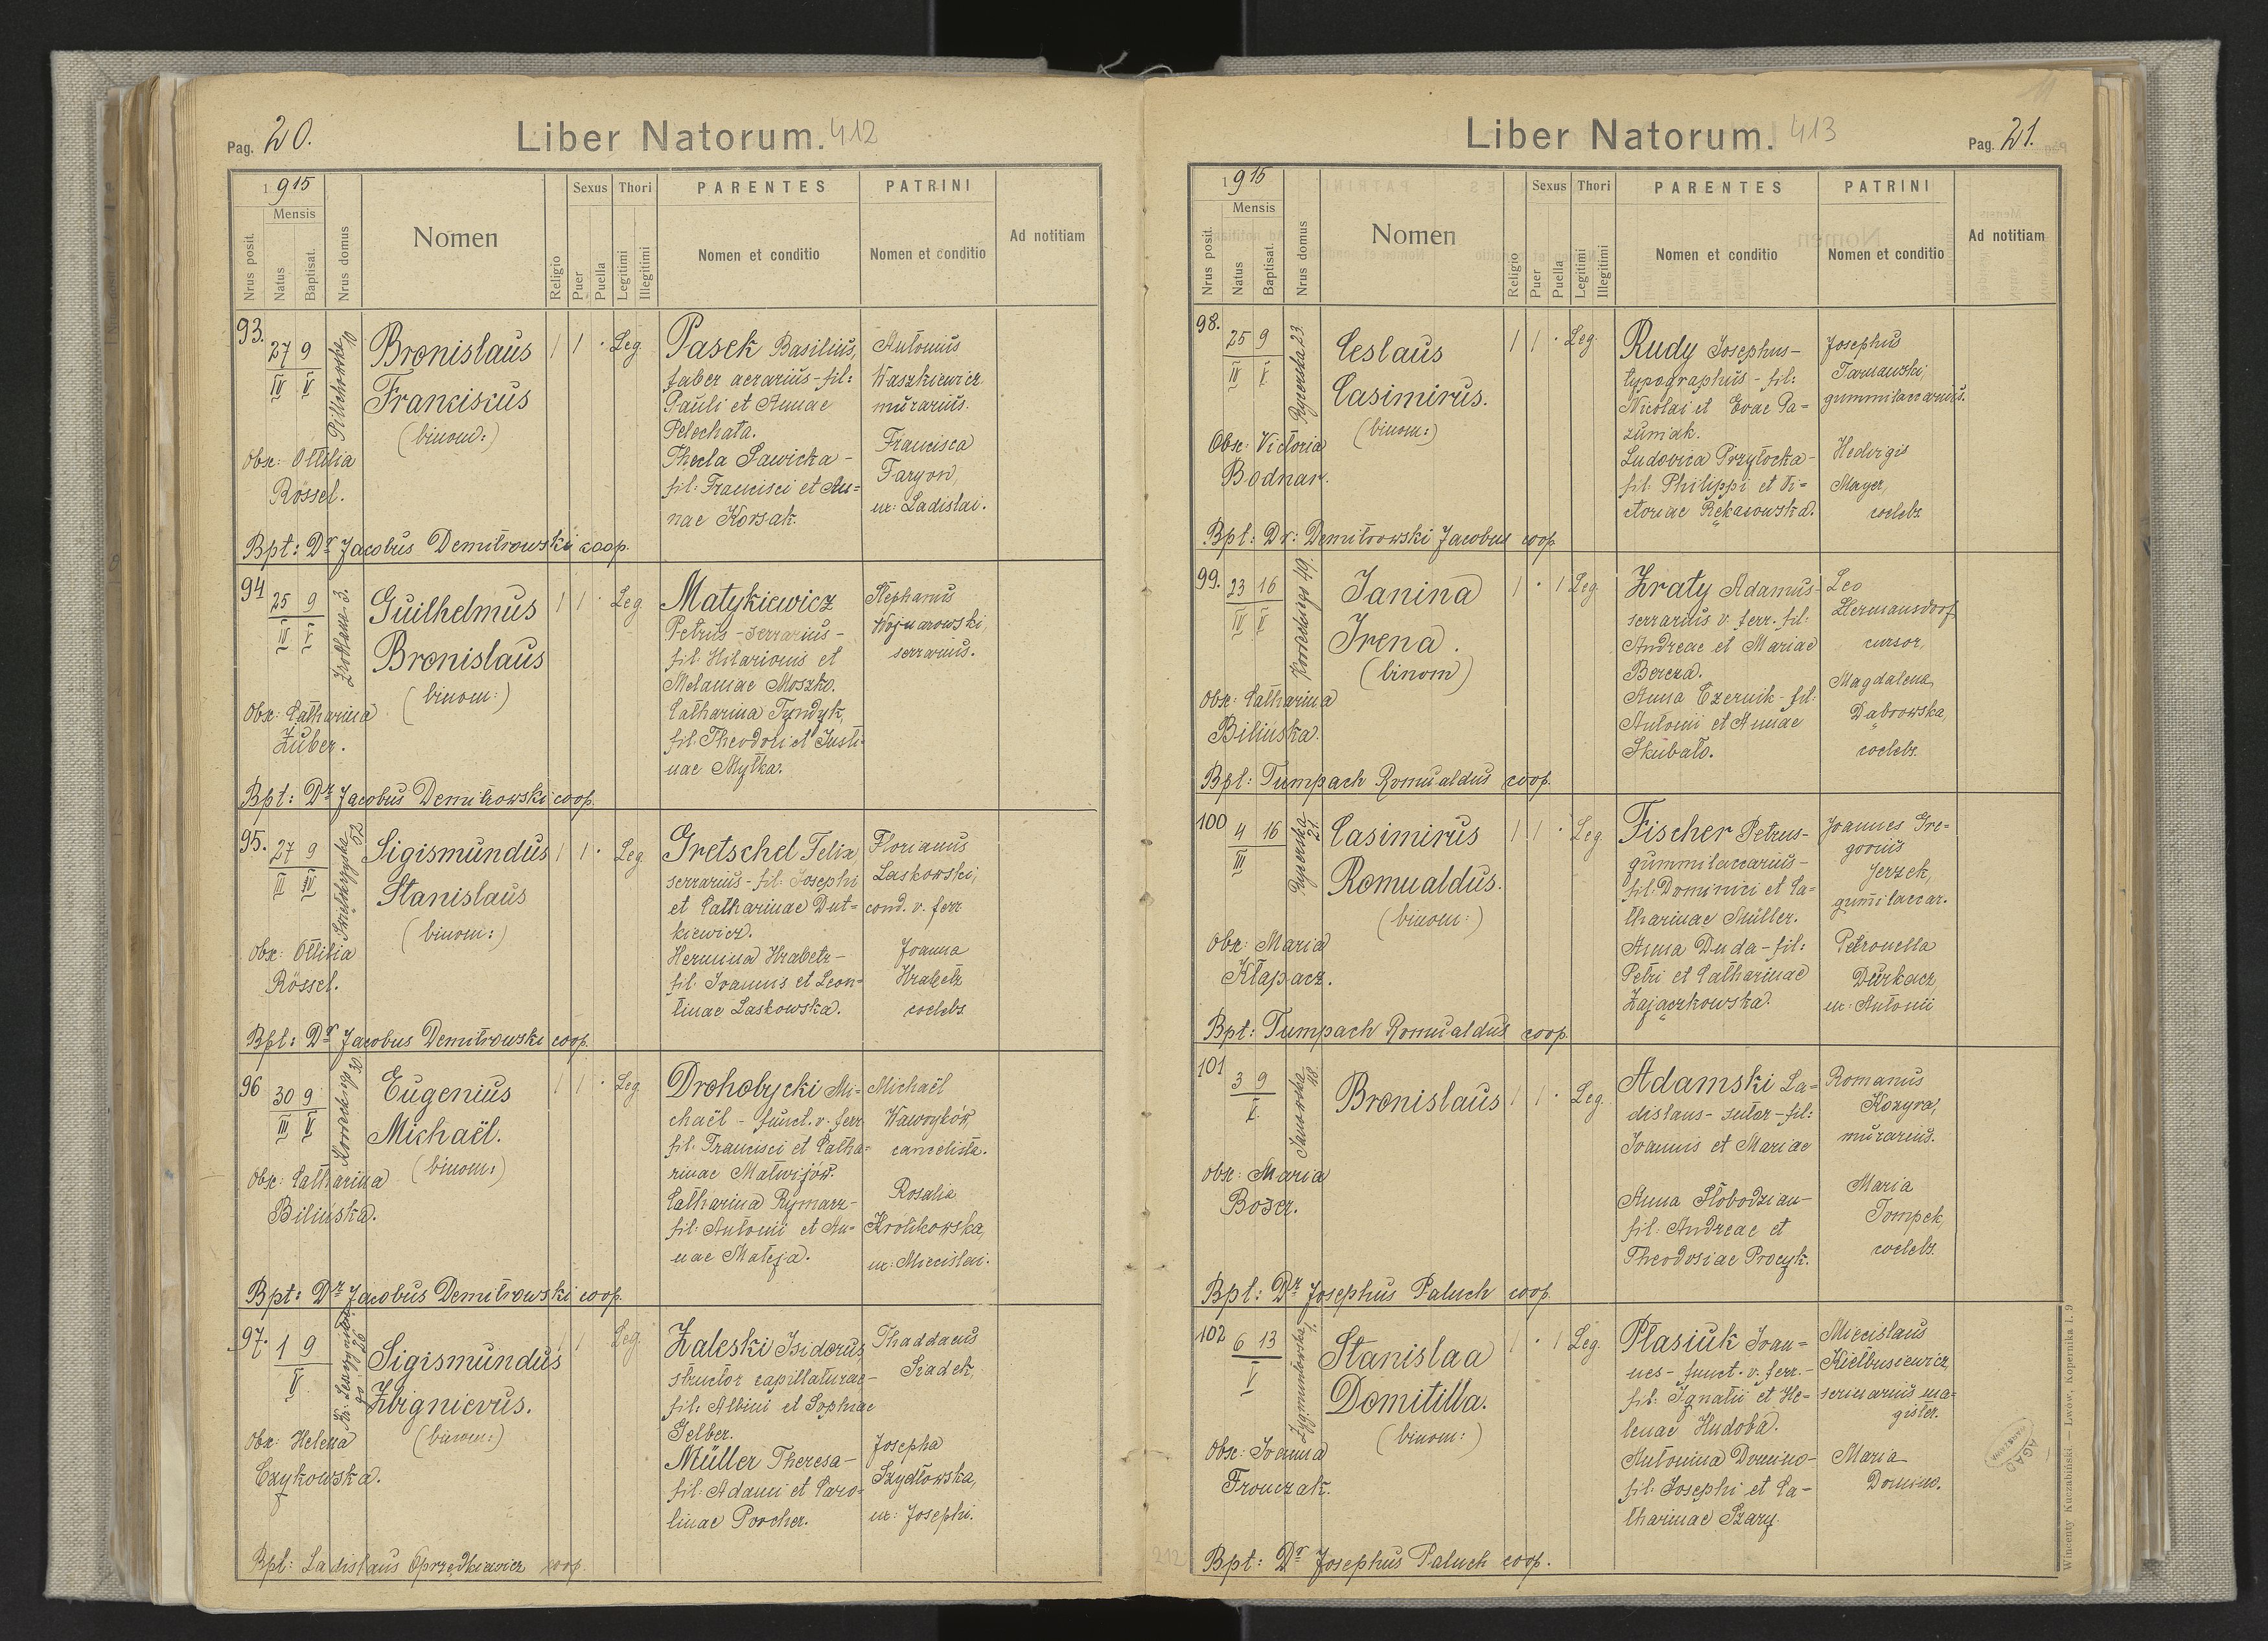 Pag. 20.
Liber Natorum. 412
1915
Mensis
Nrus posit.
Natus
Baptisat.
Nrus domus
Nomen
Religio
Sexus
Puer
Puella
Thori
Legitimi
Illegitimi
PARENTES
Nomen et conditio
PATRINI
Nomen et conditio
Ad notitiam
93.
27 9
IV V
10
Bronislaus
Franciscus
(binom:)
1 1 · Leg.
Obst: Ottilia
Rössel.
Pasek Basilius,
faber aerarius - fil:
Pauli et Annae
Pelechata.
Thecla Sawicka -
fil: Francisci et An=
nae Korsak.
Antonius
Waszkiewicz
murarius.
Francisca
Faryon,
ux: Ladislai.
Bpt: Dr Jacobus Demitrowski coop.
94
25 9
IV V
3.
Guilhelmus
Bronislaus
(binom:)
1 1 · Leg
Obst: Catharina
Zuber.
Matykiewicz
Petrus - serrarius -
fil: Hilarionis et
Melaniae Moszko.
Catharina Tyndyk,
fil: Theodori et Justi=
nae Mytka.
Stephanus
Wojnarowski,
serrarius.
Bpt: Dr Jacobus Demitrowski coop.
95.
27 9
52
Sigismundus
Stanislaus
(binom:)
1 1 · Leg
Obst: Ottilia
Rössel.
Gretschel Felix
serrarius - fil: Josephi
et Catharinae Dut=
kiewicz.
Hermina Hrabetz -
fil: Joannis et Leon=
tinae Laskowska.
Florianus
Laskowski,
cond. v. ferr.
Joanna
Hrabetz
coelebs
Bpt: Dr Jacobus Demitrowski coop.
96
30 9
III V
Korzeckiego 30.
Eugenius
Michaël.
(binom:)
1 1 · Leg
Obst: Catharina
Bilinska.
Drohobycki Mi=
chaël - funct. v. ferr
fil: Francisci et Catha=
rinae Matwijów.
Catharina Rymarz -
fil: Antonii et An=
nae Mateja.
Michaël
Wawryków,
cancelista.
Rosalia
Krolikowska,
ux: Miecislai.
Bpt: Dr Jacobus Demitrowski coop.
97.
1 9
V
Sigismundus
Zbignievus.
(binom:)
1 1 Leg.
Obst: Helena
Czykowska.
Zaleski Isidorus,
structor capillaturae -
fil: Albini et Sophiae
Gelber.
Müller Theresa -
fil: Adami et Caro=
linae Porcher.
Thaddaeus
Siadek,
Josepha
Szydłowska,
ux: Josephi.
Bpt: Ladislaus Oprzędkiewicz coop.
Liber Natorum. 413
Pag. 21.
1915
Mensis
Nrus posit.
Natus
Baptisat.
Nrus domus
Nomen
Religio
Sexus
Puer
Puella
Thori
Legitimi
Illegitimi
PARENTES
Nomen et conditio
PATRINI
Nomen et conditio
Ad notitiam
98.
25 9
IV V
23.
Ceslaus
Casimirus.
(binom:)
1 1 · Leg
Obst: Victoria
Bodnar.
Rudy Josephus -
typographus - fil:
Nicolai et Evae Pa=
zuniak.
Ludovica Przyłocka -
fil: Philippi et Vi=
ctoriae Rękasowska.
Josephus
Tarnawski,
gummilaccarius.
Hedvigis
Mayer,
coelebs
Bpt: Dr: Demitrowski Jacobus coop
99.
23 16
IV V
Korzeckiego 49.
Janina
Irena.
(binom)
1 · 1 Leg.
Obst: Catharina
Bilinska.
Kraty Adamus -
serrarius v. ferr. fil:
Andreae et Mariae
Bereza.
Anna Czernik - fil:
Antonii et Annae
Skubało.
Leo
Hermansdorf
cursor,
Magdalena
Dąbrowska,
coelebs.
Bpt: Tumpach Romualdus coop.
100
4 16
III
21.
Casimirus
Romualdus.
(binom:)
1 1 · Leg
Obst: Maria
Kłapacz.
Fischer Petrus -
gummilaccarius -
fil: Dominici et Ca=
tharinae Müller.
Anna Duda - fil:
Petri et Catharinae
Zajączkowska.
Joannes Gre=
gorius
Jerzek,
gumilaccar.
Petronella
Durkacz,
ux: Antonii
Bpt: Tumpach Romualdus coop.
101
3 9
V
Janowska 18.
Bronislaus
1 1 · Leg.
Obst: Maria
Boser.
Adamski La=
dislaus - sutor - fil:
Joannis et Mariae
Anna Słobodzian -
fil: Andreae et
Theodosiae Procyk.
Romanus
Kozyra,
murarius.
Maria
Tompek,
coelebs.
Bpt: Dr Josephus Paluch coop.
102
6 13
V
Zygmuntowska 1.
Stanislaa
Domitilla.
(binom:)
1 · 1 Leg.
Obst: Joanna
Fronczak.
Ptasiuk Joan=
nes - funct. v. ferr. -
fil: Ignatii et He=
lenae Hudoba.
Antonina Domino -
fil: Josephi et Ca=
tharinae Szary.
Miecislaus
Kiełbusiewicz,
scriniarius ma=
gister.
Maria
Domino.
Bpt: Dr Josephus Paluch coop.
212
AGAD
WARSZAWA
Wincenty Kuczabiński. — Lwów, Kopernika l. 9